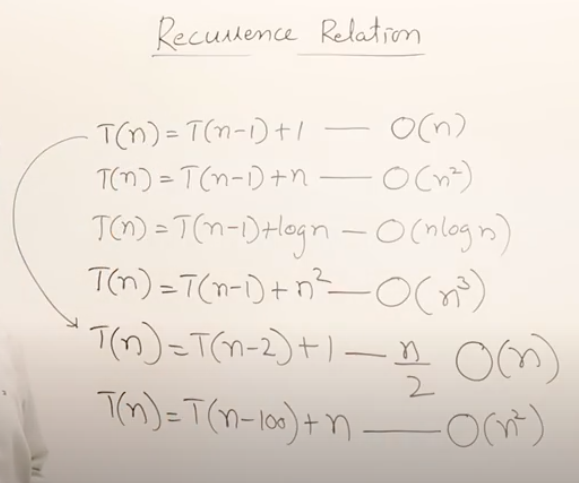 Recurrence Relation
T(n) = T(n-1) + 1 — O(n)
T(n) = T(n-1) + n — O(n²)
T(n) = T(n-1) + log n — O(n log n)
T(n) = T(n-1) + n² — O(n³)
T(n) = T(n-2) + 1 — n/2 O(n)
T(n) = T(n-100) + n — O(n²)